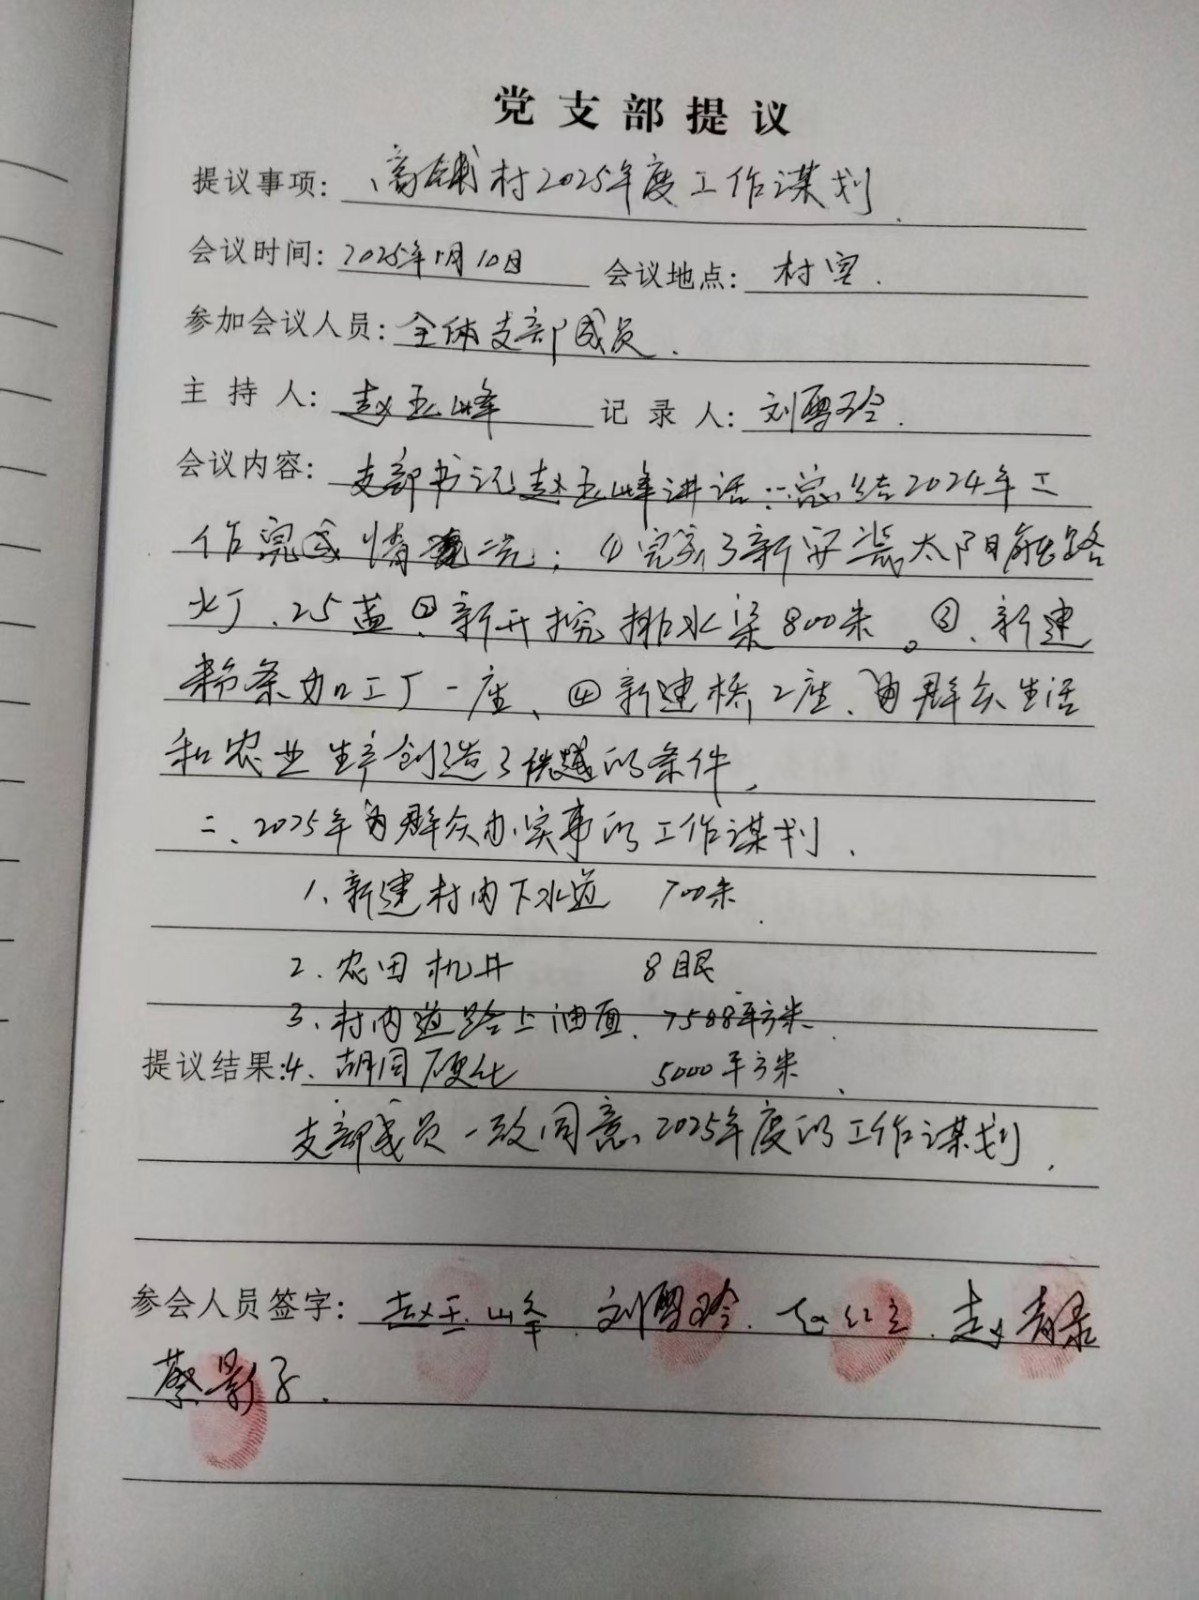 党支部提议
提议事项: 高铺村2025年度工作谋划.
会议时间: 2025年1月10日 会议地点: 村室.
参加会议人员: 全体支部成员.
主持人: 赵玉峰 记录人: 刘雪玲.
会议内容: 支部书记赵玉峰讲话:一、总结2024年工
作完成情况: ①完家了新安装太阳能路
灯、25盏②、新开挖排水渠800米。③、新建
粉条加工厂一座、④新建桥2座、为群众生活
和农业生产创造了优越的条件.
二、2025年为群众办实事的工作谋划.
1、新建村内下水道 700米.
2. 农田机井 8眼
3、村内道路上油面. 7588平方米.
提议结果:4、胡同硬化 5000平方米、
支部成员一致同意2025年度的工作谋划.
参会人员签字: 赵玉峰. 刘雪玲. 赵红立. 赵青录
蔡影子.